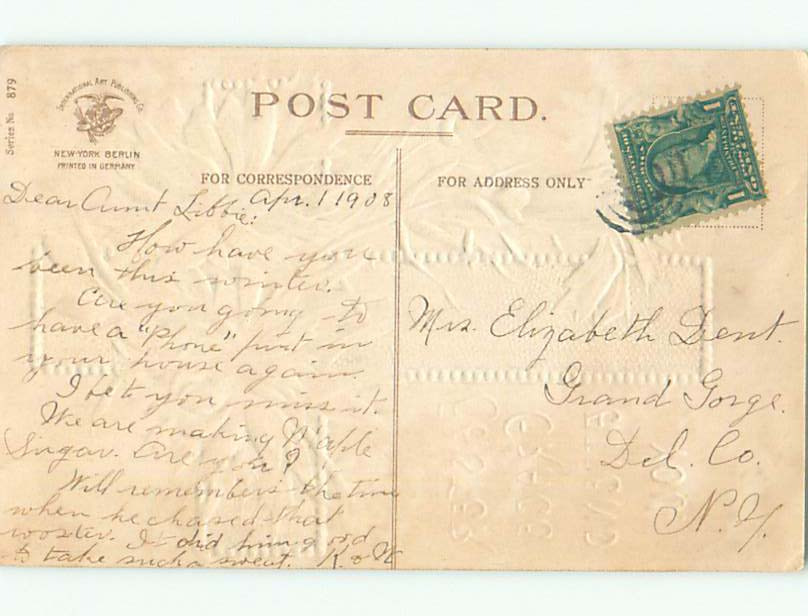 Series No. 879
INTERNATIONAL ART PUBLISHING CO.
NEW-YORK BERLIN
PRINTED IN GERMANY
POST CARD.
FOR CORRESPONDENCE
FOR ADDRESS ONLY
1 1
Apr. 1 1908
Dear Aunt Libbie:
How have you
been this winter.
Are you going to
have a "Phone" put in
your house again.
I bet you miss it.
We are making Maple
Sugar. Are you?
Will remembers the time
when he chased that
rooster. It did him good
to take such a sweat. K & W
Mrs. Elizabeth Dent.
Grand Gorge.
Del. Co.
N.Y.